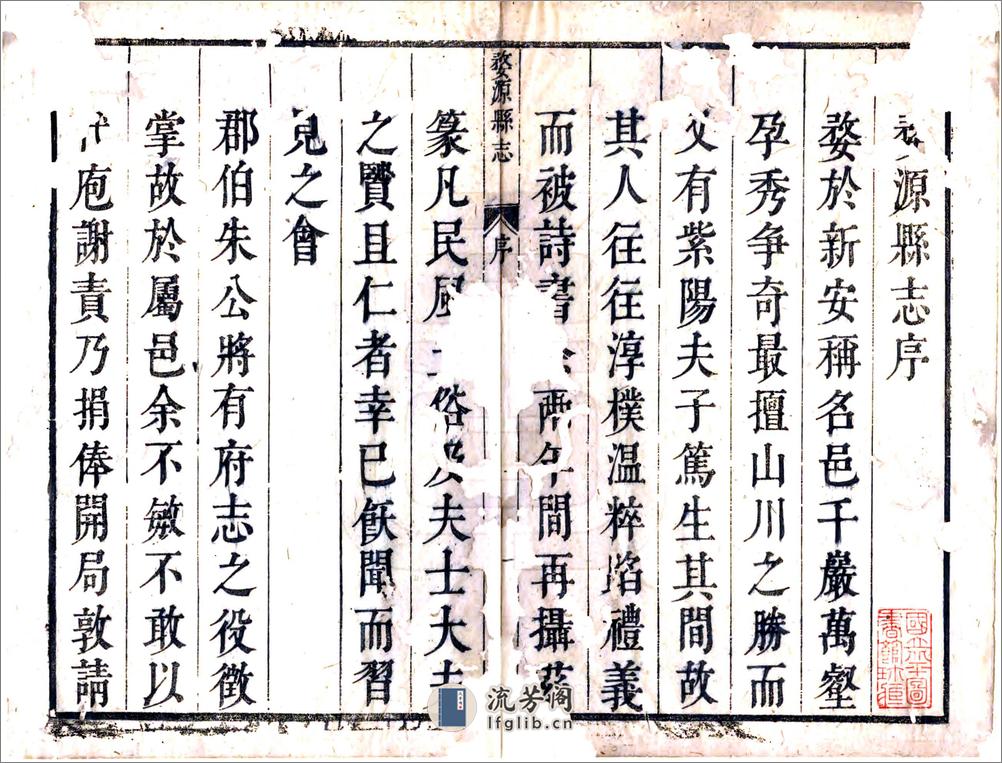 源縣志序
婺於新安稱名邑千巖萬壑
孕秀争奇最擅山川之勝而
又有紫陽夫子篤生其間故
其人往往淳樸温粹蹈禮義
而被詩書 兩年間再攝
婺源縣志
序
篆凡民風 俗 夫士大夫
之賢且仁者幸已飫聞而習
見之會
郡伯朱公將有府志之役徴
掌故於屬邑余不敏不敢以
庖謝責乃捐俸開局敦請
流芳阁
lfglib.cn